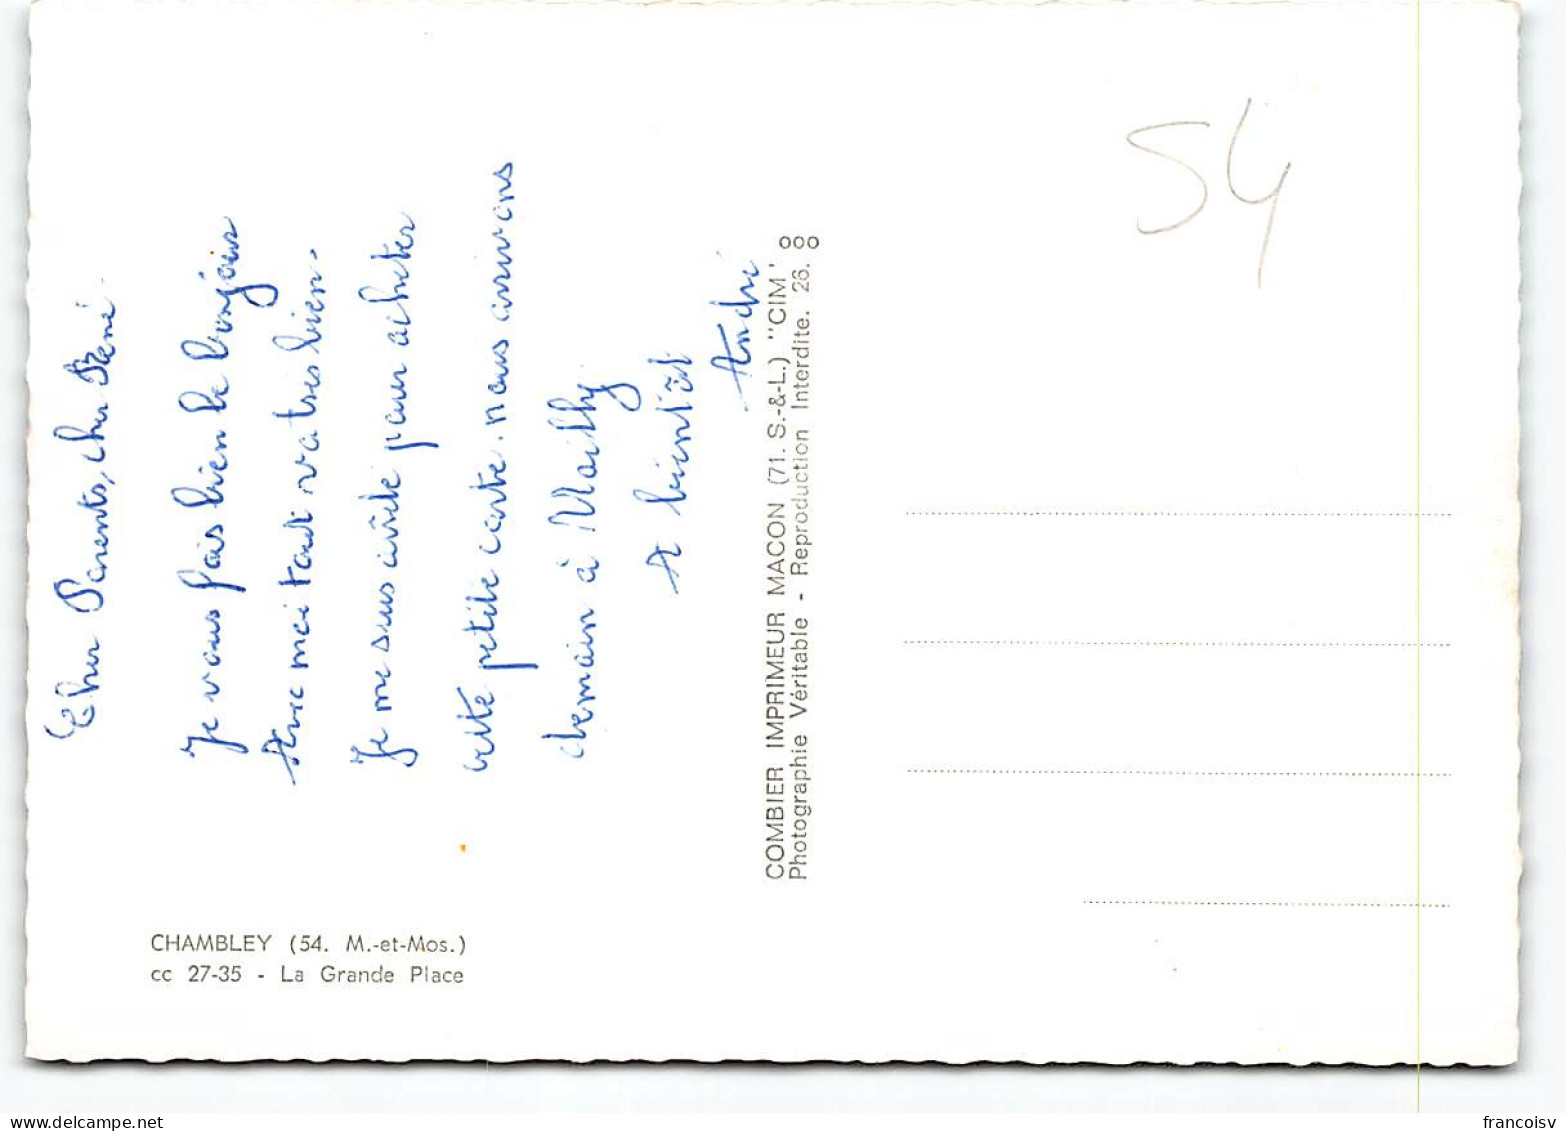 Cher Parents, cher René.
Je vous fais bien le bonjour
Avec moi tout va très bien.
Je me suis arrêté pour acheter
cette petite carte. nous arrivons
demain à Mailly
A bientôt
André
CHAMBLEY (54. M.-et-Mos.)
cc 27-35 - La Grande Place
COMBIER IMPRIMEUR MACON (71. S.-&-L.) "CIM"
Photographie Véritable - Reproduction Interdite. 26.
54
francoisv